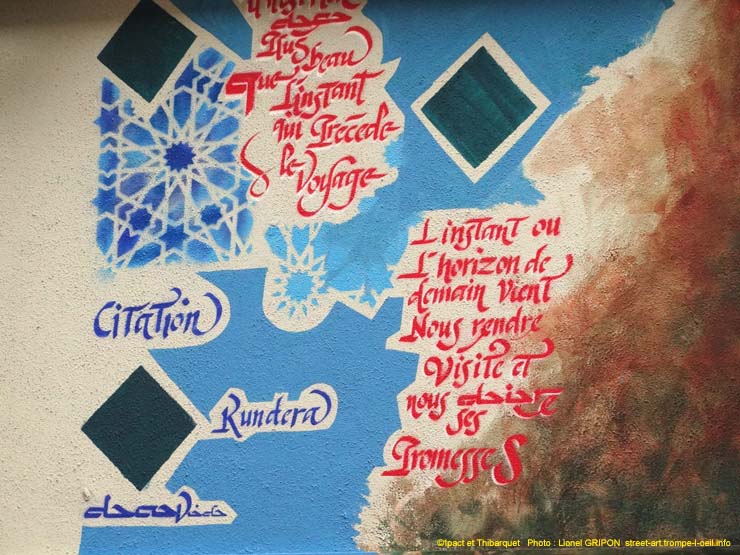 Plus
beau
Que L'instant
qui Précède
le
Voyage
L'instant ou
L'horizon de
demain Vient
Nous rendre
Visite et
nous
ses
PromesseS
Citation
Kundera
©Ipact et Thibarquet Photo : Lionel GRIPON street-art.trompe-l-oeil.info